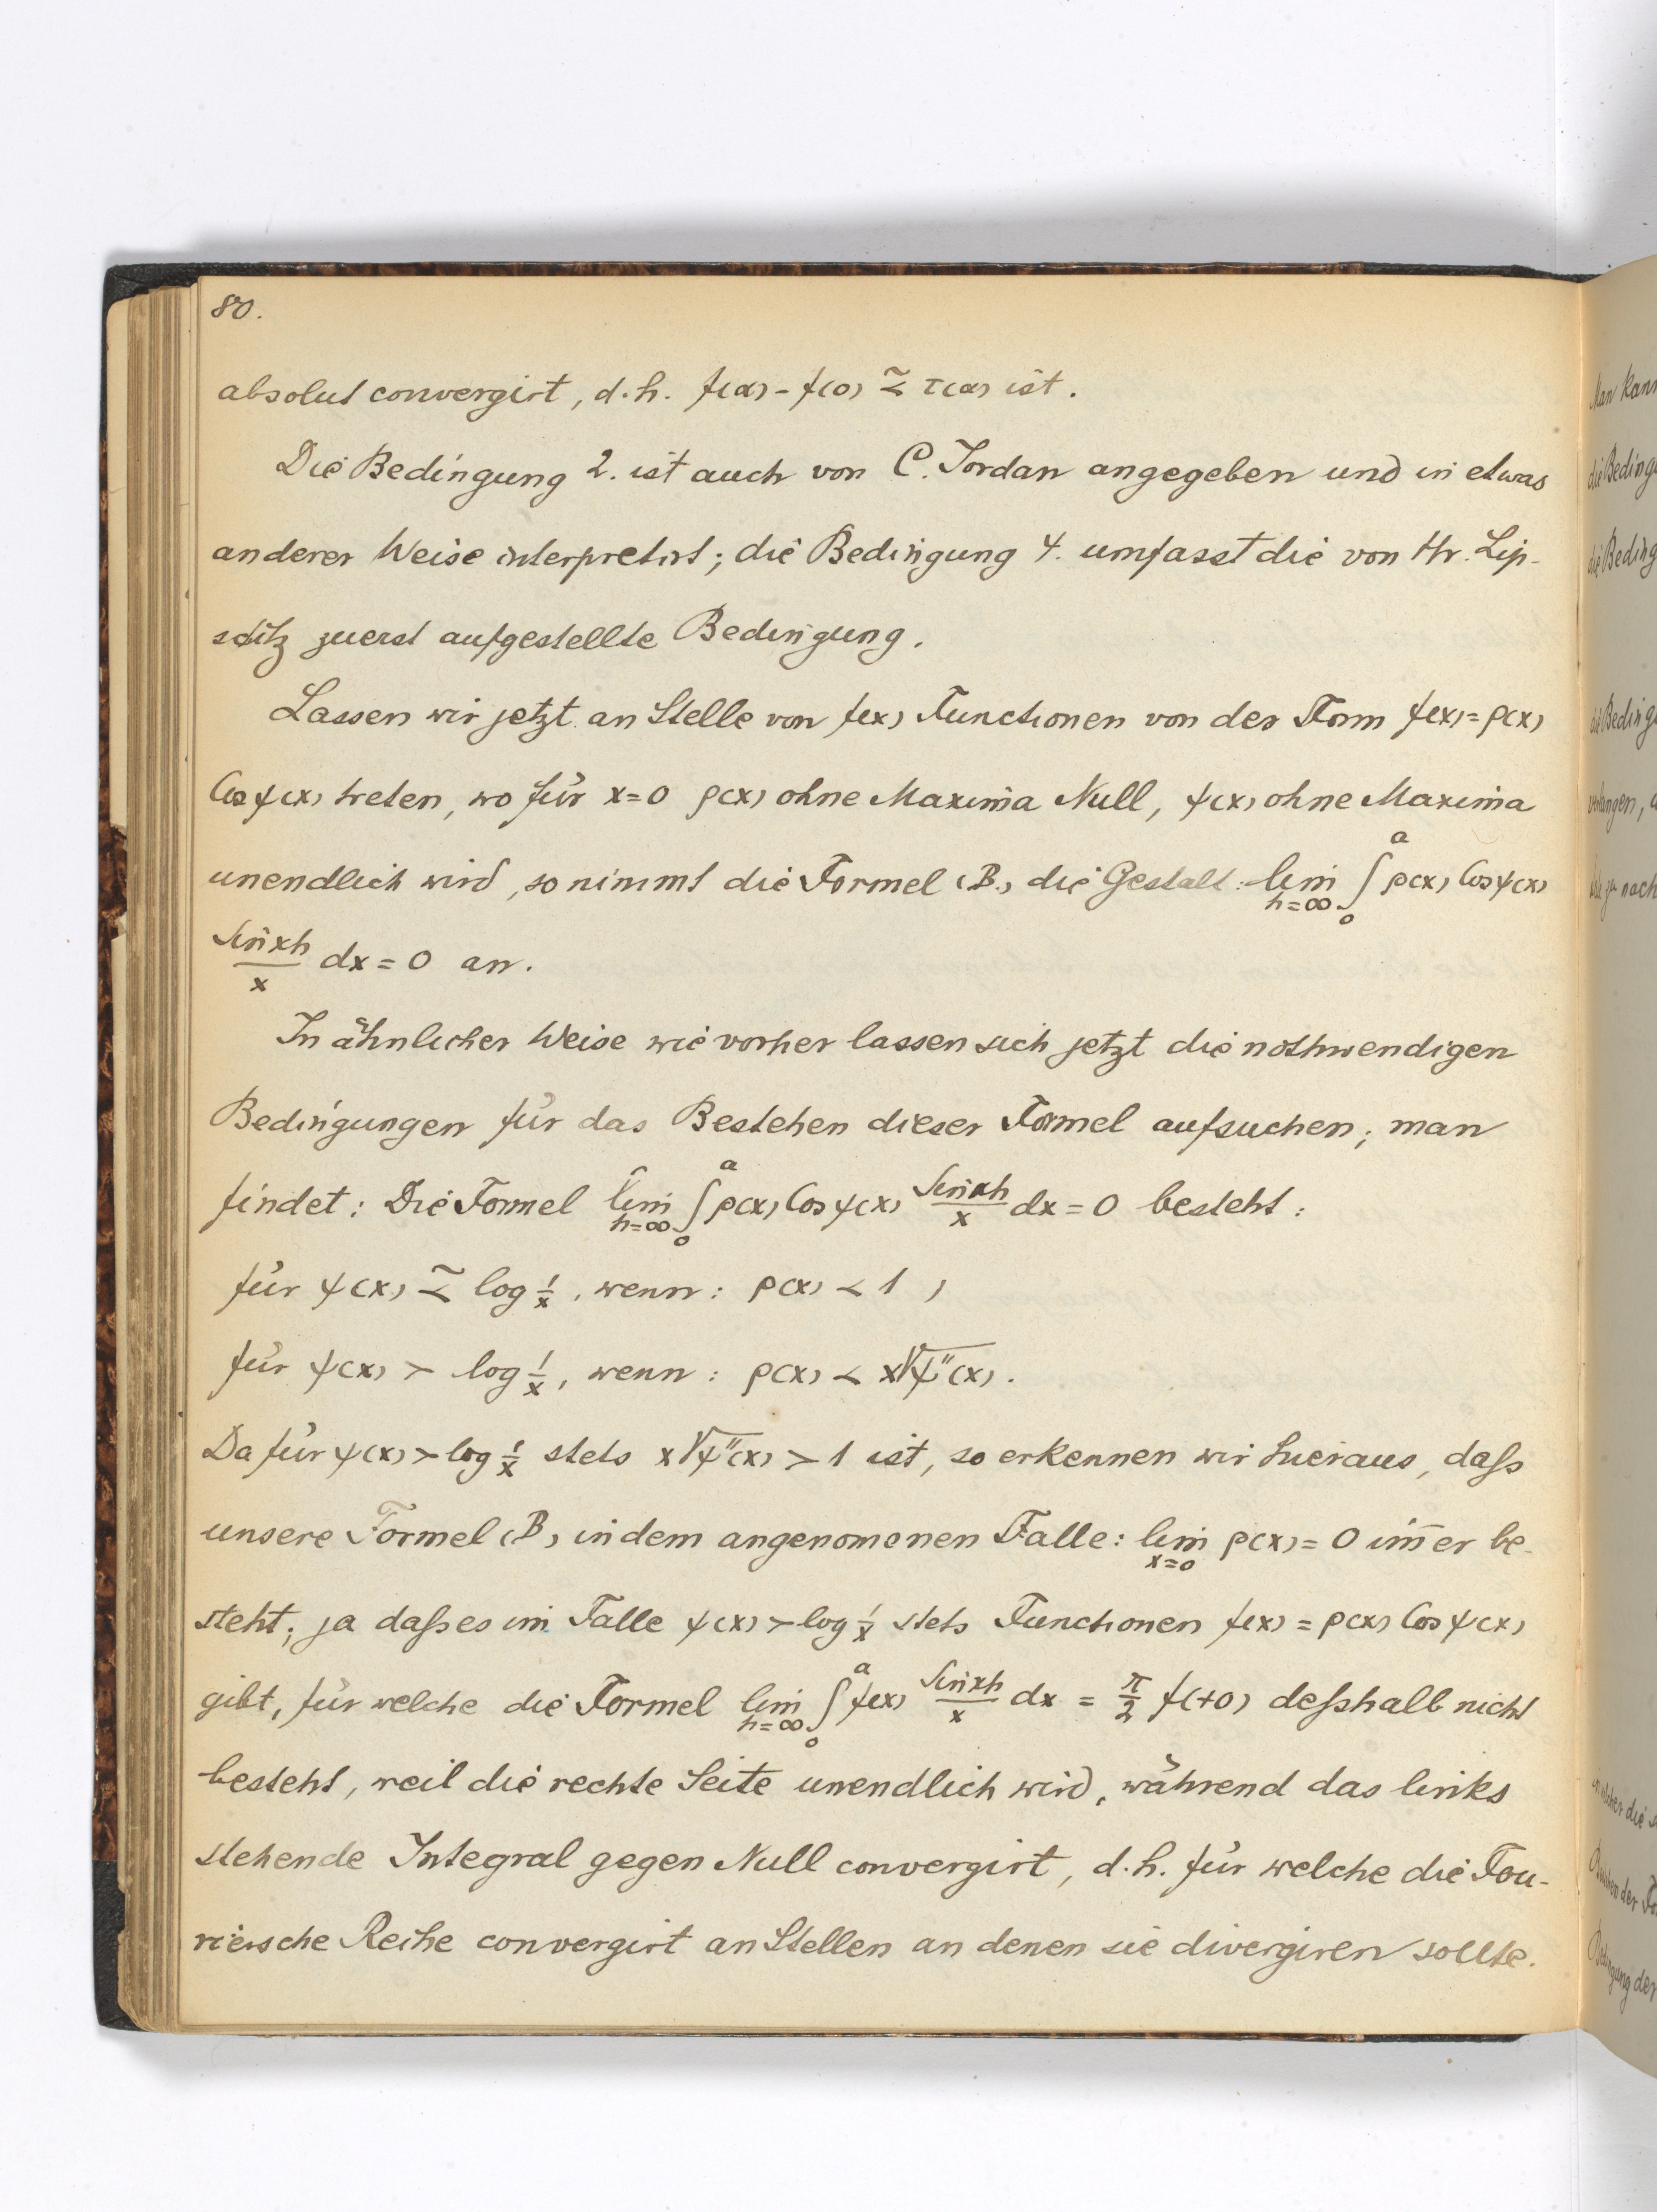 80.
absolut convergirt, d.h. f(α) - f(0) ⪝ τ(α) ist.
Die Bedingung 2. ist auch von C. Jordan angegeben und in etwas
anderer Weise interpretirt; die Bedingung 4. umfasst die von Hr. Lip-
schitz zuerst aufgestellte Bedingung.
Lassen wir jetzt an Stelle von f(x) Functionen von der Form f(x) = ρ(x)
Cos ψ(x) treten, wo für x=0 ρ(x) ohne Maxima Null, ψ(x) ohne Maxima
unendlich wird, so nimmt die Formel (B.) die Gestalt: lim_{h=∞} ∫_0^a ρ(x) Cos ψ(x)
\frac{Sin xh}{x} dx = 0 an.
In ähnlicher Weise wie vorher lassen sich jetzt die nothwendigen
Bedingungen für das Bestehen dieser Formel aufsuchen; man
findet: Die Formel lim_{h=∞} ∫_0^a ρ(x) Cos ψ(x) \frac{Sin xh}{x} dx = 0 besteht:
für ψ(x) ⪝ log \frac{1}{x}, wenn: ρ(x) ≺ 1,
für ψ(x) ≻ log \frac{1}{x}, wenn: ρ(x) ≺ x√ψ''(x).
Da für ψ(x) ≻ log \frac{1}{x} stets x√ψ''(x) ≻ 1 ist, so erkennen wir hieraus, daſs
unsere Formel (B) in dem angenom̅enen Falle: lim_{x=0} ρ(x) = 0 im̅er be-
steht; ja daſs es im Falle ψ(x) ≻ log \frac{1}{x} stets Functionen f(x) = ρ(x) Cos ψ(x)
gibt, für welche die Formel lim_{h=∞} ∫_0^a f(x) \frac{Sin xh}{x} dx = \frac{π}{2} f(+0) deſshalb nicht
besteht, weil die rechte Seite unendlich wird, während das links
stehende Integral gegen Null convergirt, d.h. für welche die Fou-
riersche Reihe convergirt an Stellen an denen sie divergiren sollte.
Man kann
die Beding
die Beding
die Beding